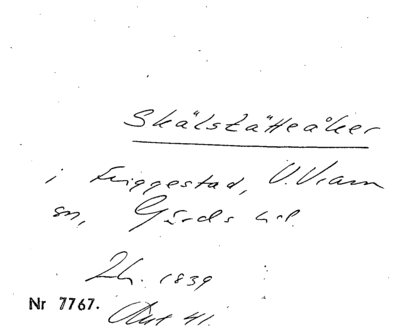 Skälstätteåker
i Friggestad, V. Vram
sn, Gärds hd.
Lh. 1839
Nr 7767.
Akt 41.